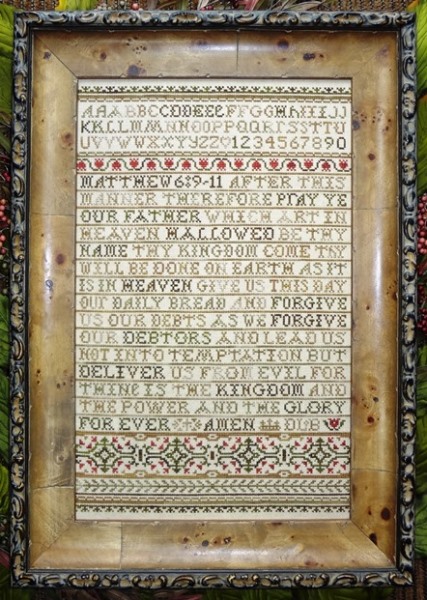 AAAABBCCDDEEEEFFGGHHIIJJ
KKLLMMNNOOPPQQRRSSTTU
UVVWWXXYYZZ 1234567890
MATTHEW 6:9-11 AFTER THIS
MANNER THEREFORE PRAY YE
OUR FATHER WHICH ART IN
HEAVEN HALLOWED BE THY
NAME THY KINGDOM COME THY
WILL BE DONE ON EARTH AS IT
IS IN HEAVEN GIVE US THIS DAY
OUR DAILY BREAD AND FORGIVE
US OUR DEBTS AS WE FORGIVE
OUR DEBTORS AND LEAD US
NOT INTO TEMPTATION BUT
DELIVER US FROM EVIL FOR
THINE IS THE KINGDOM AND
THE POWER AND THE GLORY
FOR EVER AMEN DLB